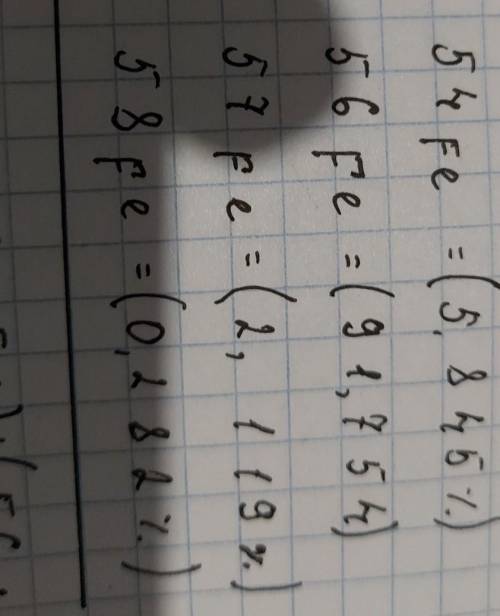 54Fe = (5,845%)
56Fe = (91,754)
57Fe = (2,119%)
58Fe = (0,282%)